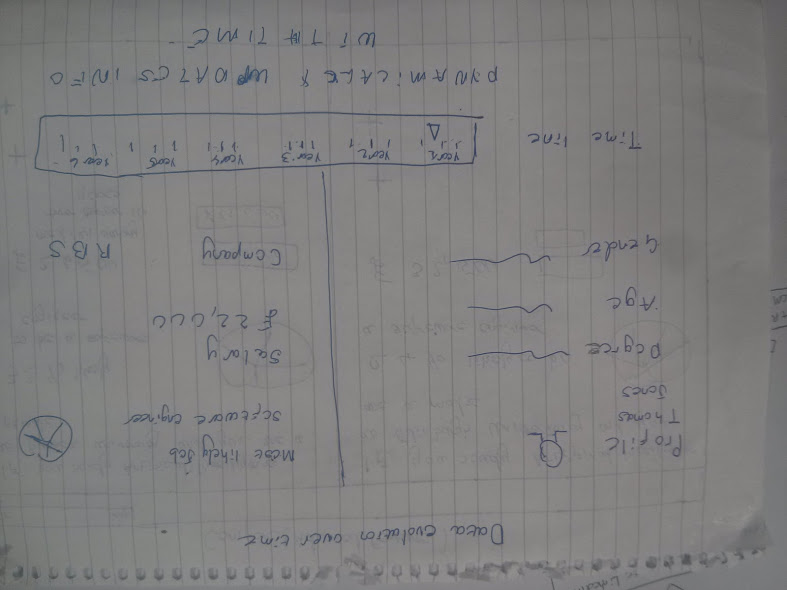 Data evolution over time
Profile
Thomas
Jones
Degree
Age
Gender
Most likely Job
Software engineer
Salary
£22,000
Company
RBS
Time line
year 1 year 2 year 3 year 4 year 5 year 6
DYNAMICALLY UPDATES INFO
WITH TIME